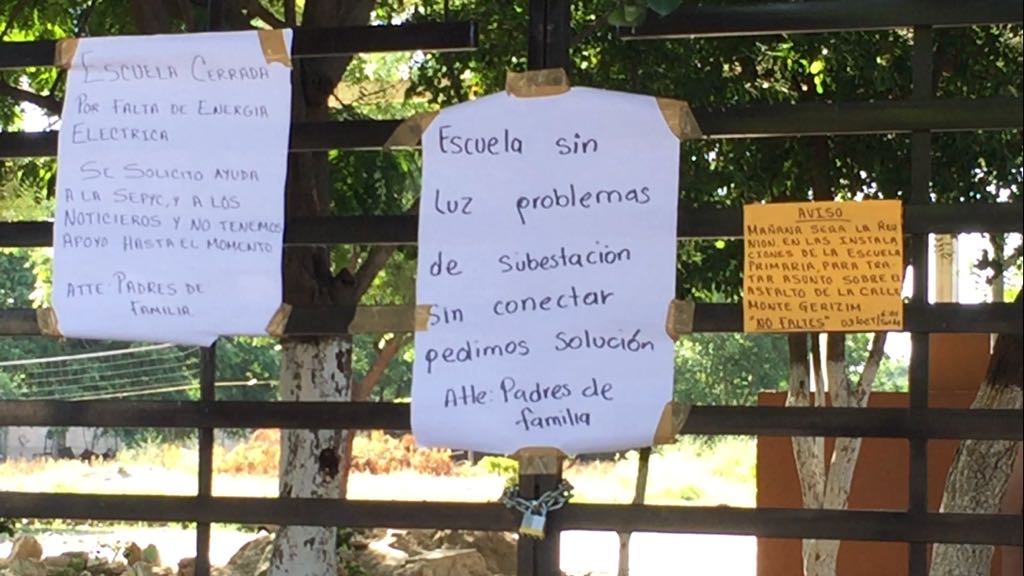 ESCUELA CERRADA
POR FALTA DE ENERGIA
ELECTRICA
SE SOLICITO AYUDA
A LA SEPYC, Y A LOS
NOTICIEROS Y NO TENEMOS
APOYO HASTA EL MOMENTO
ATTE: PADRES DE
FAMILIA
Escuela sin
luz problemas
de subestación
sin conectar
pedimos solución
Atte: Padres de
familia
AVISO
MAÑANA SERA LA REU
NION. EN LAS INSTALA
CIONES DE LA ESCUELA
PRIMARIA, PARA TRA
TAR ASUNTO SOBRE EL
ASFALTO DE LA CALLE
MONTE GERIZIM
"NO FALTES"